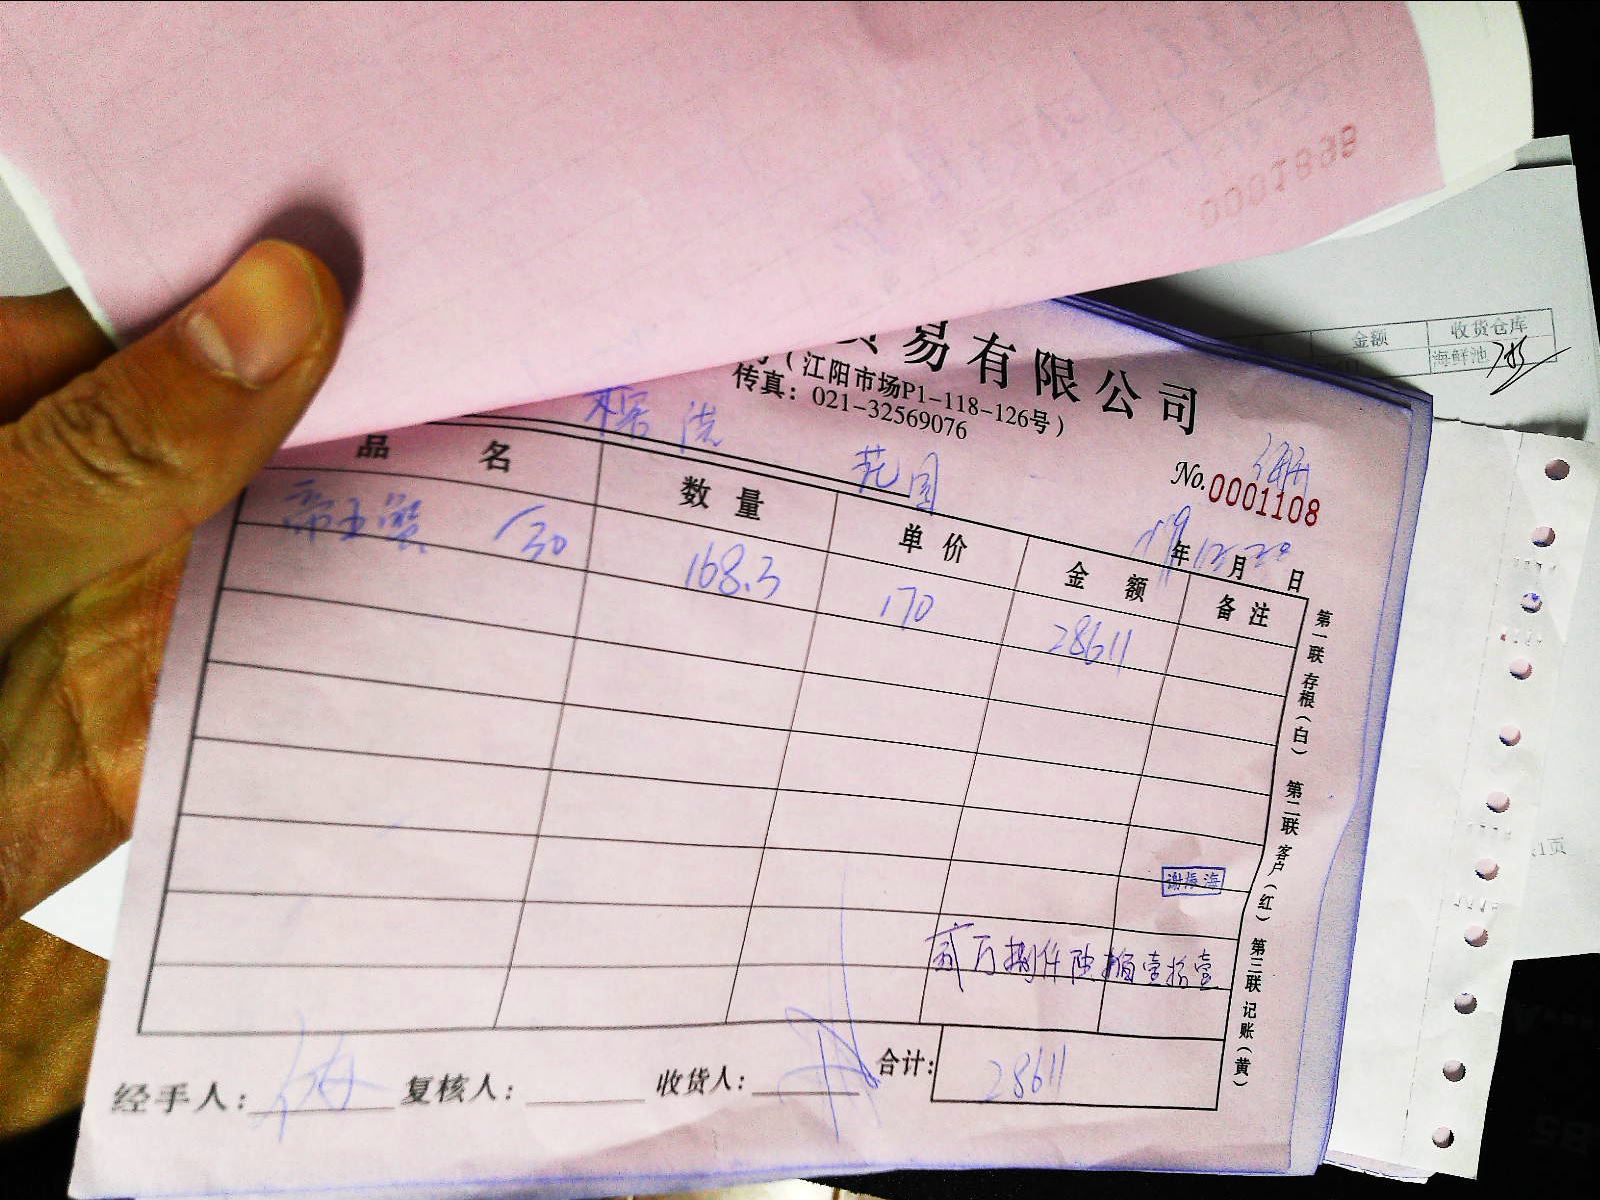 0001898
金额 收货仓库
海鲜池
贸易有限公司
(江阳市场P1-118-126号)
传真: 021-32569076
花园
No.0001108
19年12月20日
品名 数量 单价 金额 备注
帝王蟹 30 168.3 170 28611
谢振海
贰万捌仟陆佰壹拾壹
经手人: 复核人: 收货人: 合计: 28611
第一联 存根(白) 第二联 客户(红) 第三联 记账(黄)